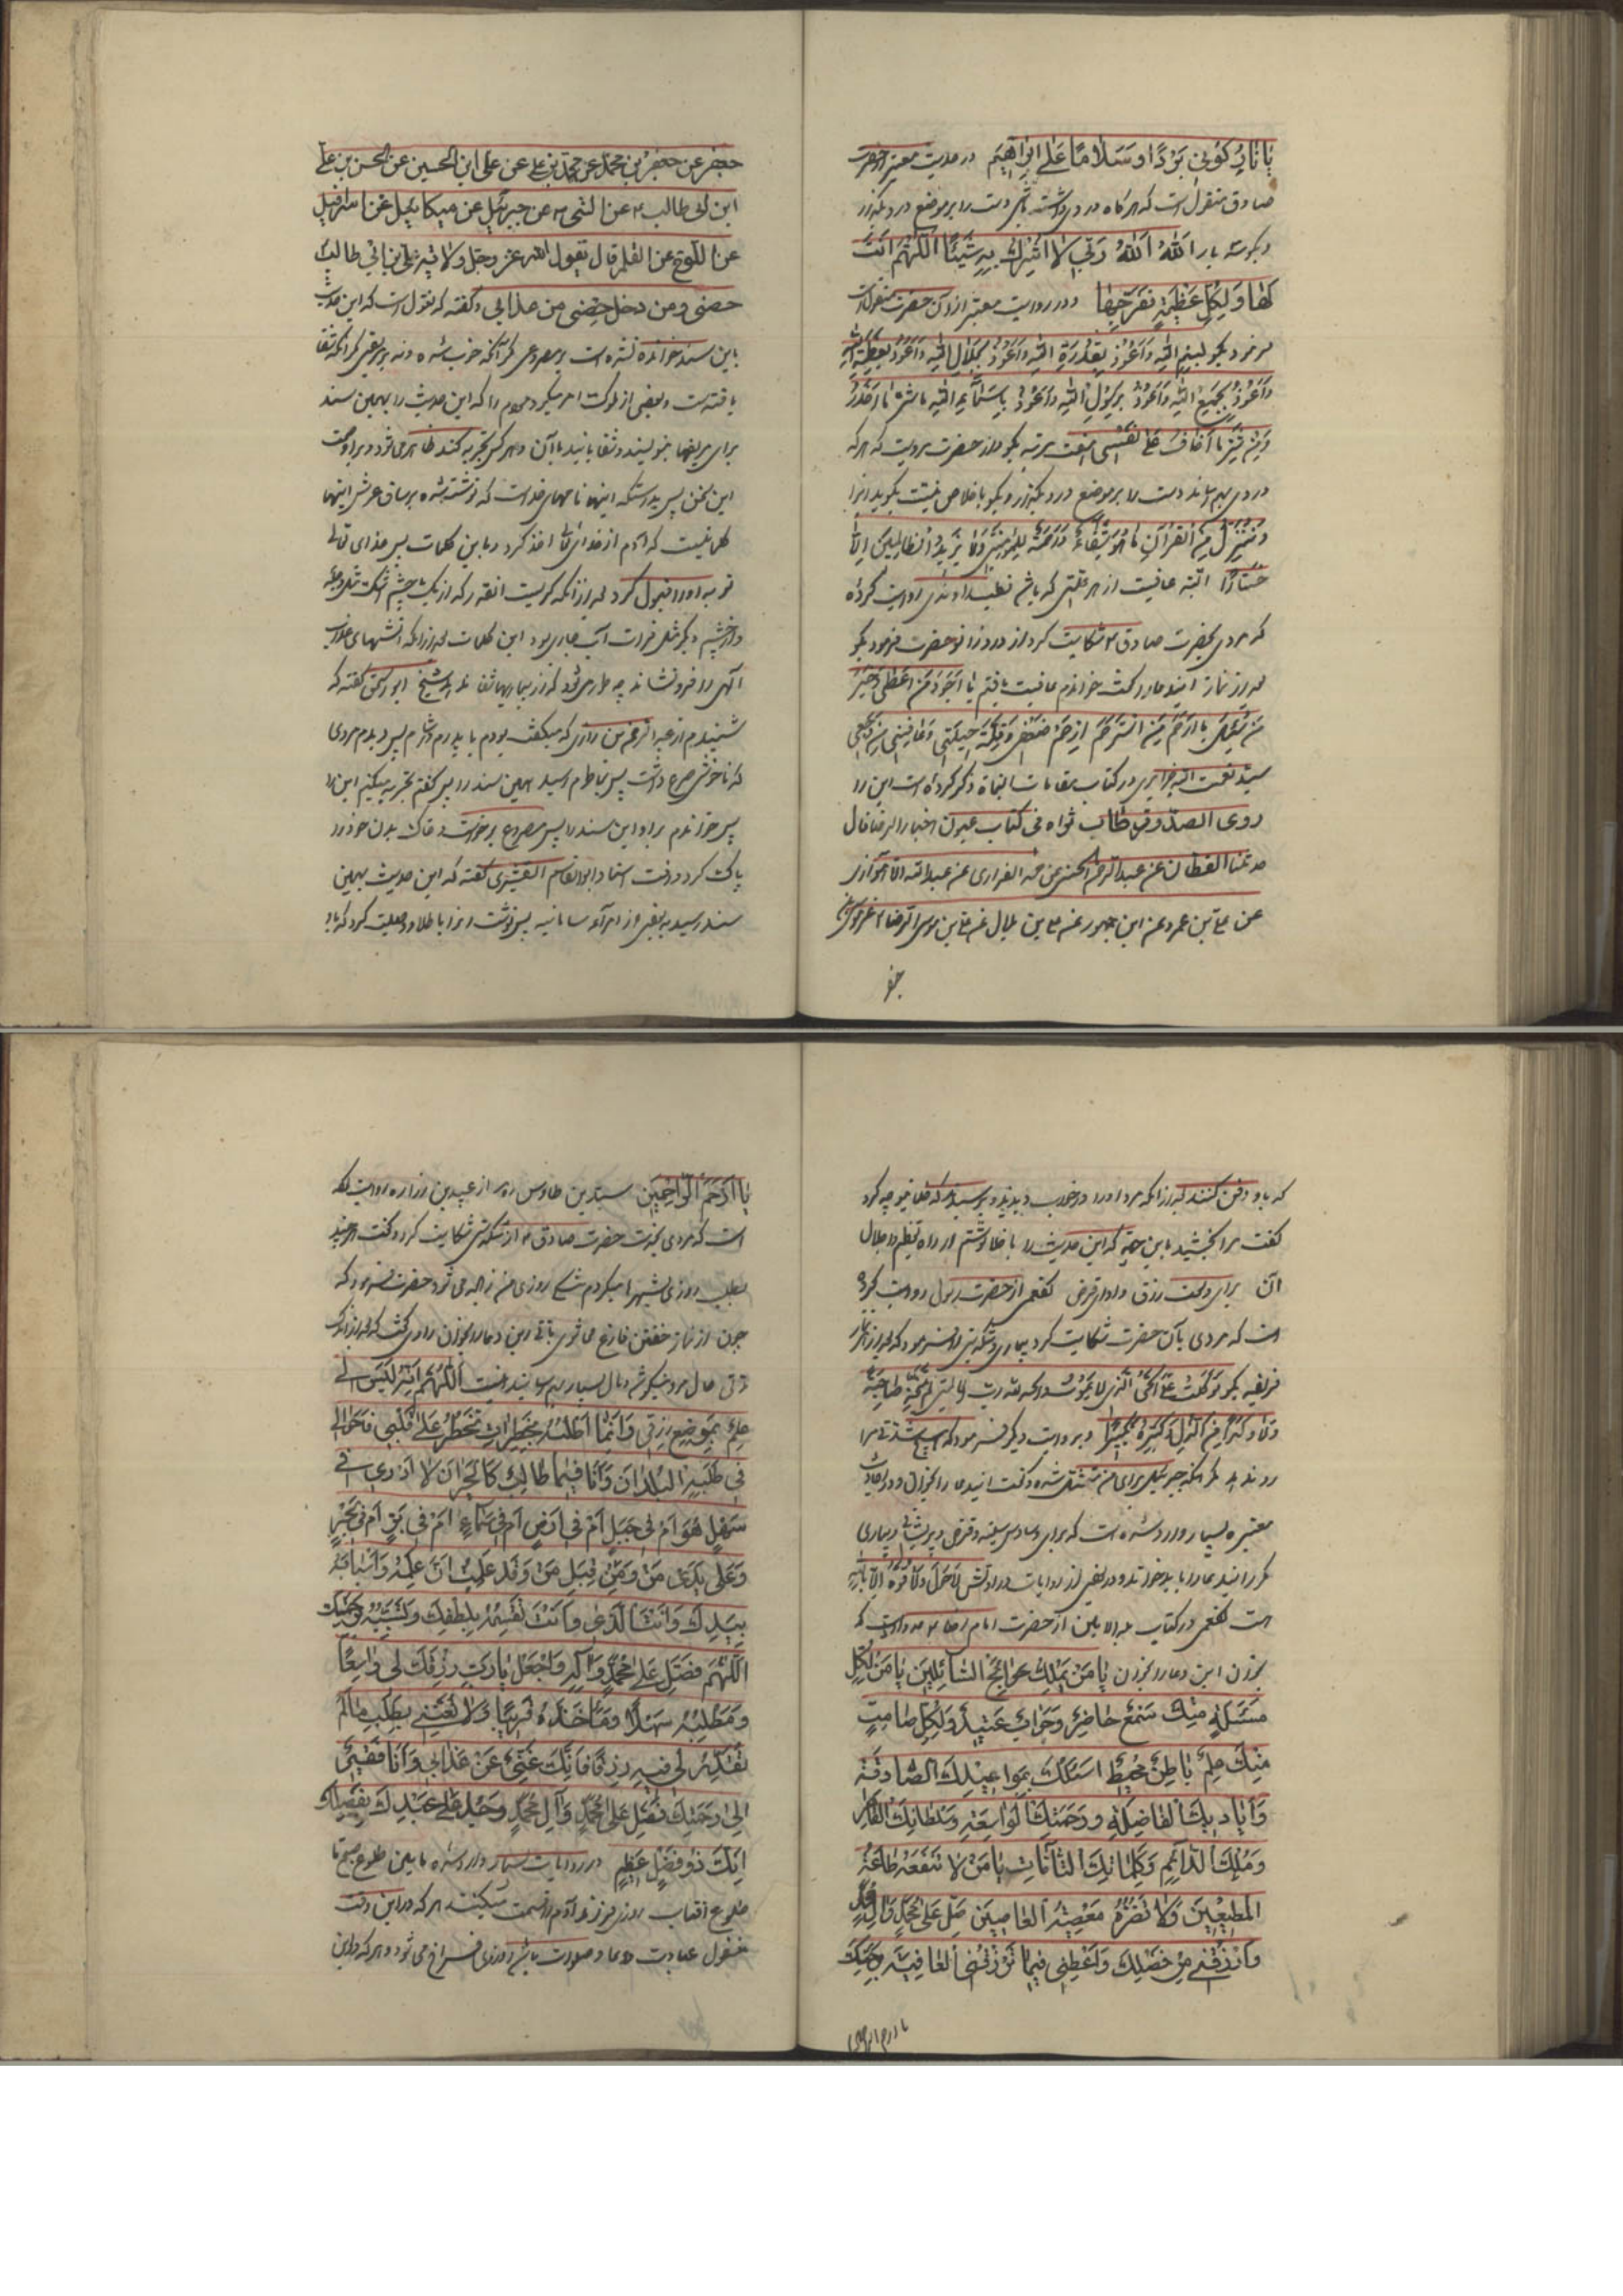 یا نارُ کُونی بَرْدًا وَ سَلامًا عَلی اِبْراهیمَ در حدیث معتبر از حضرت
صادق منقول است که هرگاه دردی داشته باشی دست را بر موضع درد بگذار
و بگو سه بار اَللهُ اَللهُ رَبّی لا اُشْرِکُ بِهِ شَیْئًا اَللّهُمَّ اَنْتَ
لَها وَ لِکُلِّ عَظیمَةٍ فَفَرِّجْها و در روایت معتبر از آن حضرت منقولست
فرمود بگو بسم الله و اعوذ بقدرة الله و اعوذ بجلال الله و اعوذ بعظمة الله
و اعوذ بجمع الله و اعوذ برسول الله و اعوذ باسماء الله من شر ما احذر
و من شر ما اخاف علی نفسی هفت مرتبه بگو و از حضرت مرویست که هر که
دردی بهم رساند دست را بر موضع درد بگذارد و بگو باخلاص نیت بگوید
وَ نُنَزِّلُ مِنَ القُرْآنِ ما هُوَ شِفاءٌ وَ رَحْمَةٌ لِلْمُؤمِنینَ وَ لا یَزیدُ الظالِمینَ اِلّا
خَسارًا البته عافیت از هر علتی که باشد قطب راوندی روایت کرده
که مردی بحضرت صادق ع شکایت کرد از درد زانو حضرت فرمود بگو
بعد از نماز اینمار گفت خواندم عافیت یافتم یا اَجْوَدَ مَنْ اَعْطی وَ خَیْرَ
مَنْ سُئِلَ یا اَرْحَمَ مَنِ اسْتُرْحِمَ اِرْحَمْ ضَعْفی وَ قِلَّةَ حیلَتی وَ عافِنی مِنْ وَجَعی
سید نعمت الله جزایری در کتاب مقامات النجاة ذکر کرده است این را
روی الصدوق طاب ثراه فی کتاب عیون اخبار الرضا قال
حدثنا القطان عن عبد الرحمن الحسنی عن محمد الفزاری عن عبد الله الاهوازی
عن علی بن عمرو عن ابن جمهور عن علی بن بلال عن علی بن موسی الرضا ع عن موسی بن
جعفر
جعفر عن جعفر بن محمد عن محمد بن علی عن علی ابن الحسین عن الحسن بن علی
ابن ابی طالب ع عن النبی ص عن جبرئیل عن میکائیل عن اسرافیل
عن اللوح عن القلم قال یقول الله عز و جل ولایة علی بن ابی طالب
حصنی و من دخل حصنی من عذابی و گفته که منقول است که این حدیث
باین سند خوانده نشده است بر مصروعی مگر آنکه خوب شده و نه بر مریضی مگر آنکه شفا
یافته است و بعضی از ملوک امر میکرد مردم را که این حدیث را بهمین سند
برای مریضها بنویسند و شفا یابند بآن و هر کس تجربه کند ظاهر می شود بر او
این سخن پس بدرستیکه اینها نامهای خداست که نوشته شده بر ساق عرش اینها
کلماتیست که آدم از خدای تعالی اخذ کرد و باین کلمات پس خدای تعالی
توبه او را قبول کرد بعد از آنکه گریست انقدر که از یک چشم اشک مثل دجله
و از چشم دیگر مثل فرات آب جاری بود این کلمات بعد از آنکه آتشهای عذاب
الهی را فرو نشاند چه طور می شود که از بیماریها شفا ندهد شیخ ابو اسحق گفته که
شنیدم از عبد الرحمن رازی که میگفت بودم با پدرم در شام پس دیدم مردی
که ناخوشی صرع داشت پس بخاطرم رسید همین سند را پس گفتم تجربه میکنم این را
پس خواندم بر او این سند را پس مصروع برخواست و خاک بدن خود را
پاک کرد و رفت استاد ابو القاسم القشیری گفته که این حدیث بهمین
سند رسید به بعضی از امرآء سامانیه پس نوشت انرا با طلا و وصیت کرد که با او
که با او دفن کنند بعد از آنکه مرد او را در خواب دیدند و پرسیدند که خدا بتو چه کرد
گفت مرا بخشید باین جهة که این حدیث را با طلا نوشتم از راه تعظیم و جلال
آن برای وسعت رزق و ادای قرض کفعمی از حضرت رسول روایت کرده
است که مردی بآن حضرت شکایت کرد بیماری و تنگدستی را فرمود که بعد از نماز
فریضه بگو توکلت علی الحی الذی لا یموت و الحمد لله الذی لم یتخذ صاحبة
و لا ولدا و کبره تکبیرا و بروایت دیگر فرمود که هیچ شدتی مرا
رو نداد مگر آنکه جبرئیل برای من متمثل شد و گفت این دعا را بخوان و در احادیث
معتبره بسیار وارد شده است که برای وساوس سینه و قرض و پریشانی و بیماری
مکرر این دعا را باید خواند و در بعضی از روایات در اولش لا حول و لا قوة الا بالله
است کفعمی در کتاب بلد الامین از حضرت امام رضا ع روایت که
بخوان این دعا را بخوان یا مَنْ یَمْلِکُ حَوائِجَ السّائِلینَ یا مَنْ لِکُلِّ
مَسْئَلَةٍ مِنْکَ سَمْعٌ حاضِرٌ وَ جَوابٌ عَتیدٌ وَ لِکُلِّ صامِتٍ
مِنْکَ عِلْمٌ باطِنٌ مُحیطٌ اَسْئَلُکَ بِمَواعیدِکَ الصّادِقَةِ
وَ اَیادیکَ الفاضِلَةِ وَ رَحْمَتِکَ الواسِعَةِ وَ سُلْطانِکَ القاهِرِ
وَ مُلْکِکَ الدّائِمِ وَ کَلِماتِکَ التّامّاتِ یا مَنْ لا تَنْفَعُهُ طاعَةُ
المُطیعینَ وَ لا تَضُرُّهُ مَعْصِیَةُ العاصینَ صَلِّ عَلی مُحَمَّدٍ وَ آلِ مُحَمَّدٍ
وَ ارْزُقْنی مِنْ فَضْلِکَ وَ اَعْطِنی فیما تَرْزُقُنی العافِیَةَ بِرَحْمَتِکَ
یا ارحم الراحمین
یا اَرْحَمَ الرّاحِمینَ سید بن طاوس ره از عبید بن زراره روایت کرده
است که مردی بخدمت حضرت صادق ع از تنگدستی شکایت کرد و گفت هر چند
بطلب روزی شهرها میگردم تنگی روزی من زیاده می شود حضرت فرمود که
چون از نماز خفتن فارغ می شوی این دعا را بخوان راوی گفت که بعد از اندک
وقتی حال مرد نیکو شد و مال بسیار بهم رسانید اینست اَللّهُمَّ اِنَّهُ لَیْسَ لی
عِلْمٌ بِمَوْضِعِ رِزْقی وَ اِنَّما اَطْلُبُهُ بِخَطَراتٍ تَخْطُرُ عَلی قَلْبی فَاَجُولُ
فی طَلَبِهِ البُلْدانَ وَ اَنَا فیما طالِبٌ کَالحَیْرانِ لا اَدْری اَفی
سَهْلٍ هُوَ اَمْ فی جَبَلٍ اَمْ فی اَرْضٍ اَمْ فی سَماءٍ اَمْ فی بَرٍّ اَمْ فی بَحْرٍ
وَ عَلی یَدَیْ مَنْ وَ مِنْ قِبَلِ مَنْ وَ قَدْ عَلِمْتُ اَنَّ عِلْمَهُ وَ اَسْبابَهُ
بِیَدِکَ وَ اَنْتَ الَّذی تَقْسِمُهُ بِلُطْفِکَ وَ تُسَبِّبُهُ بِرَحْمَتِکَ
اَللّهُمَّ فَصَلِّ عَلی مُحَمَّدٍ وَ آلِهِ وَ اجْعَلْ یا رَبِّ رِزْقَکَ لی واسِعًا
وَ مَطْلَبَهُ سَهْلًا وَ مَأخَذَهُ قَریبًا وَ لا تُعَنِّنی بِطَلَبِ ما لَمْ
تُقَدِّرْ لی فیهِ رِزْقًا فَاِنَّکَ غَنِیٌّ عَنْ عَذابی وَ اَنَا فَقیرٌ
اِلی رَحْمَتِکَ فَصَلِّ عَلی مُحَمَّدٍ وَ آلِ مُحَمَّدٍ وَ جُدْ عَلی عَبْدِکَ بِفَضْلِکَ
اِنَّکَ ذُو فَضْلٍ عَظیمٍ در روایات بسیار وارد شده ما بین طلوع صبح تا
طلوع افتاب روزی فرزند آدم را قسمت میکنند هر که در این وقت
مشغول عبادت و دعا و صلوات باشد روزی فراخ می شود و هر که در این